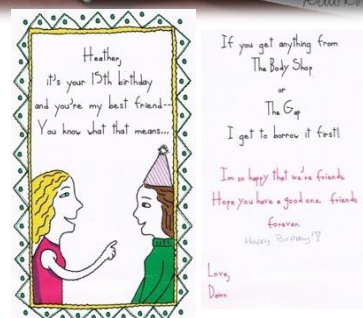 Heather,
it's your 15th birthday
and you're my best friend--
You know what that means...
If you get anything from
The Body Shop
or
The Gap
I get to borrow it first!
I'm so happy that we're friends
Hope you have a good one. friends
forever.
Happy Birthday!?
Love,
Dawn